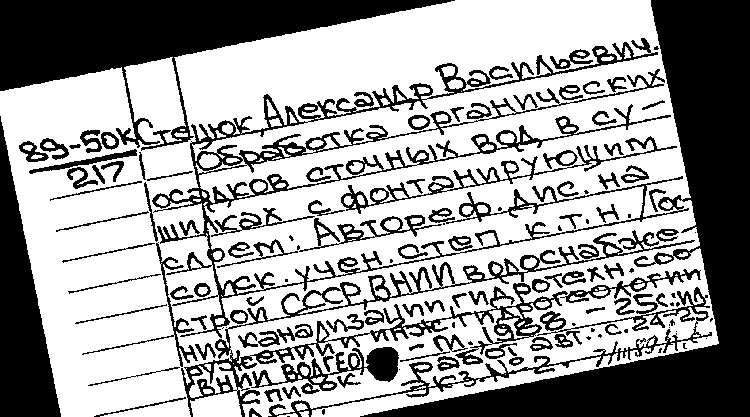 89-50к
217
Стецюк, Александр Васильевич.
Обработка органических
осадков сточных вод в су-
шилках с фонтанирующим
слоем: Автореф. дис. на
соиск. учен. степ. к.т.н. /Гос-
строй СССР, ВНИИ водоснабже-
ния, канализации, гидротехн. соо-
ружений и инж. гидрогеологии
(ВНИИ ВОДГЕО) - М. 1988 - 25с.: ил.
Список работ авт.: с. 24-25.
ДСП. Экз. № 2.